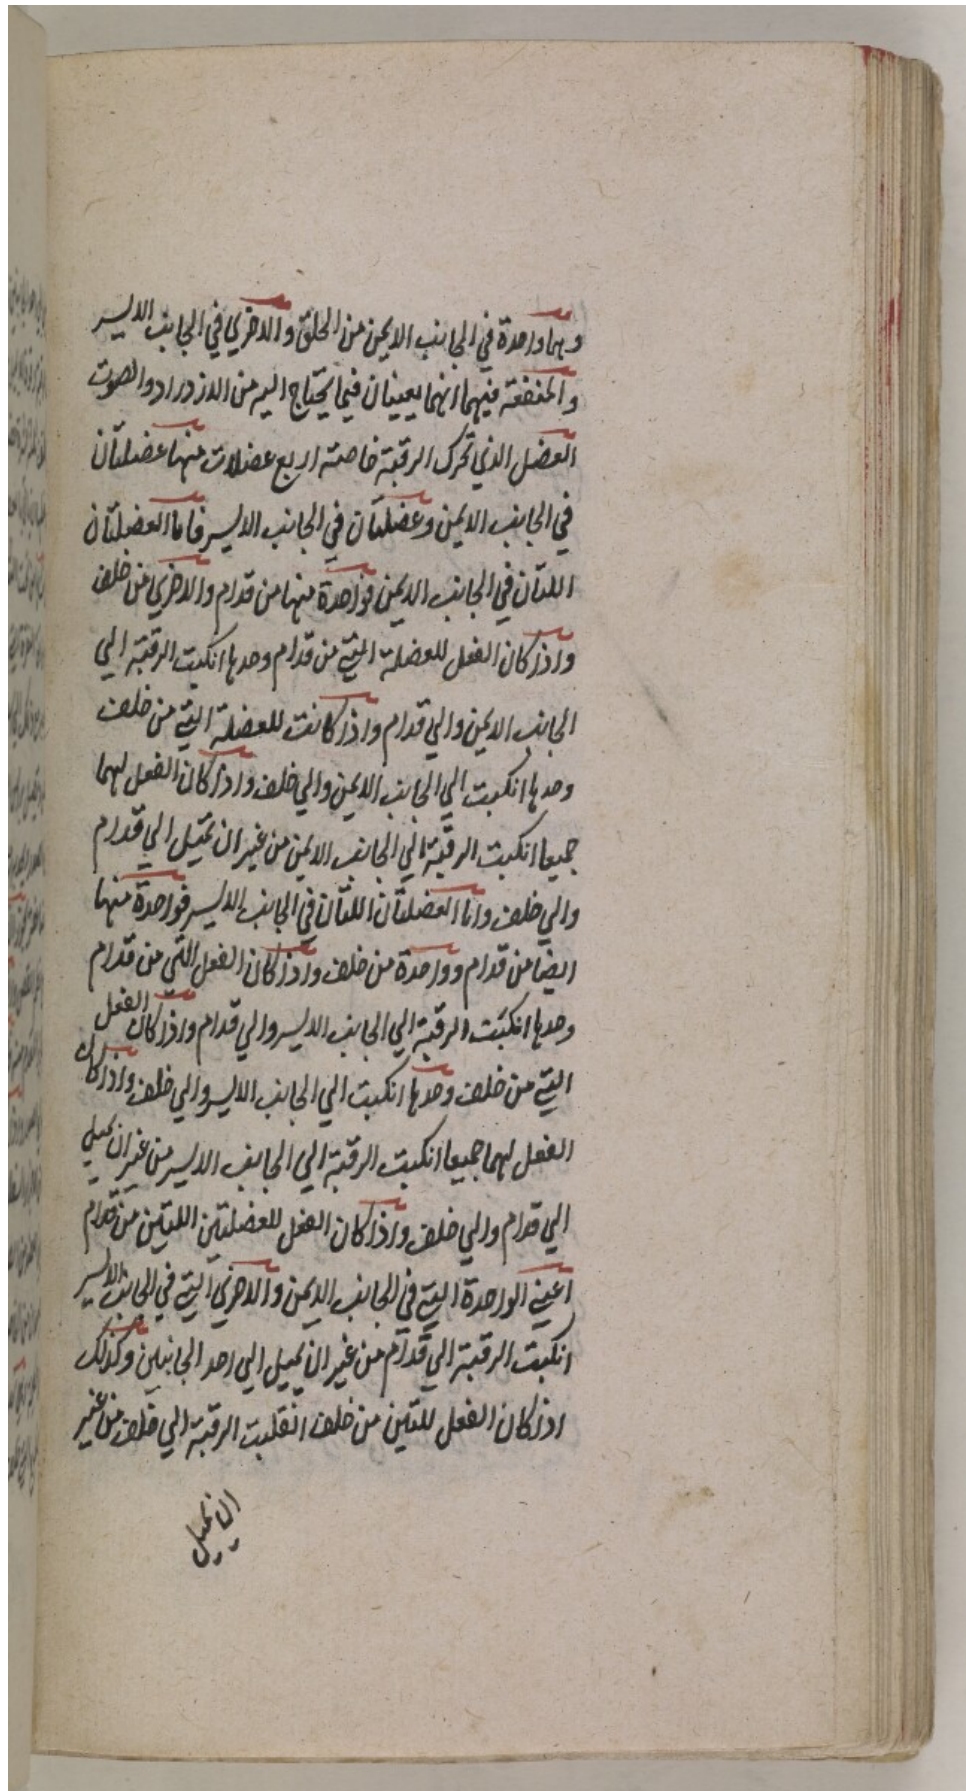 وهما واحدة في الجانب الايمن من الحلق والاخري في الجانب الايسر
والمنفعة فيهما انهما يعينان فيما يحتاج اليه من الازدراد والصوت
العضل الذي تحرك الرقبة خاصته اربع عضلات منها عضلتان
في الجانب الايمن وعضلتان في الجانب الايسر فاما العضلتان
اللتان في الجانب الايمن فواحدة منها من قدام والاخري من خلف
واذا كان الفعل للعضلة التي من قدام وحدها انكبت الرقبة الي
الجانب الايمن والي قدام واذا كانت للعضلة التي من خلف
وحدها انكبت الي الجانب الايمن والي خلف واذا كان الفعل لهما
جميعا انكبت الرقبة الي الجانب الايمن من غير ان تميل الي قدام
والي خلف واما العضلتان اللتان في الجانب الايسر فواحدة منها
ايضا من قدام وواحدة من خلف واذا كان الفعل التي من قدام
وحدها انكبت الرقبة الي الجانب الايسر والي قدام واذا كان الفعل
التي من خلف وحدها انكبت الي الجانب الايسر والي خلف واذا كان
الفعل لهما جميعا انكبت الرقبة الي الجانب الايسر من غير ان يميل
الي قدام والي خلف واذا كان الفعل للعضلتين اللتين من قدام
اعني الواحدة التي في الجانب الايمن والاخري التي في الجانب الايسر
انكبت الرقبة الي قدام من غير ان يميل الي احد الجانبين وكذلك
اذا كان الفعل للتين من خلف انقلبت الرقبة الي خلف من غير
ان يميل